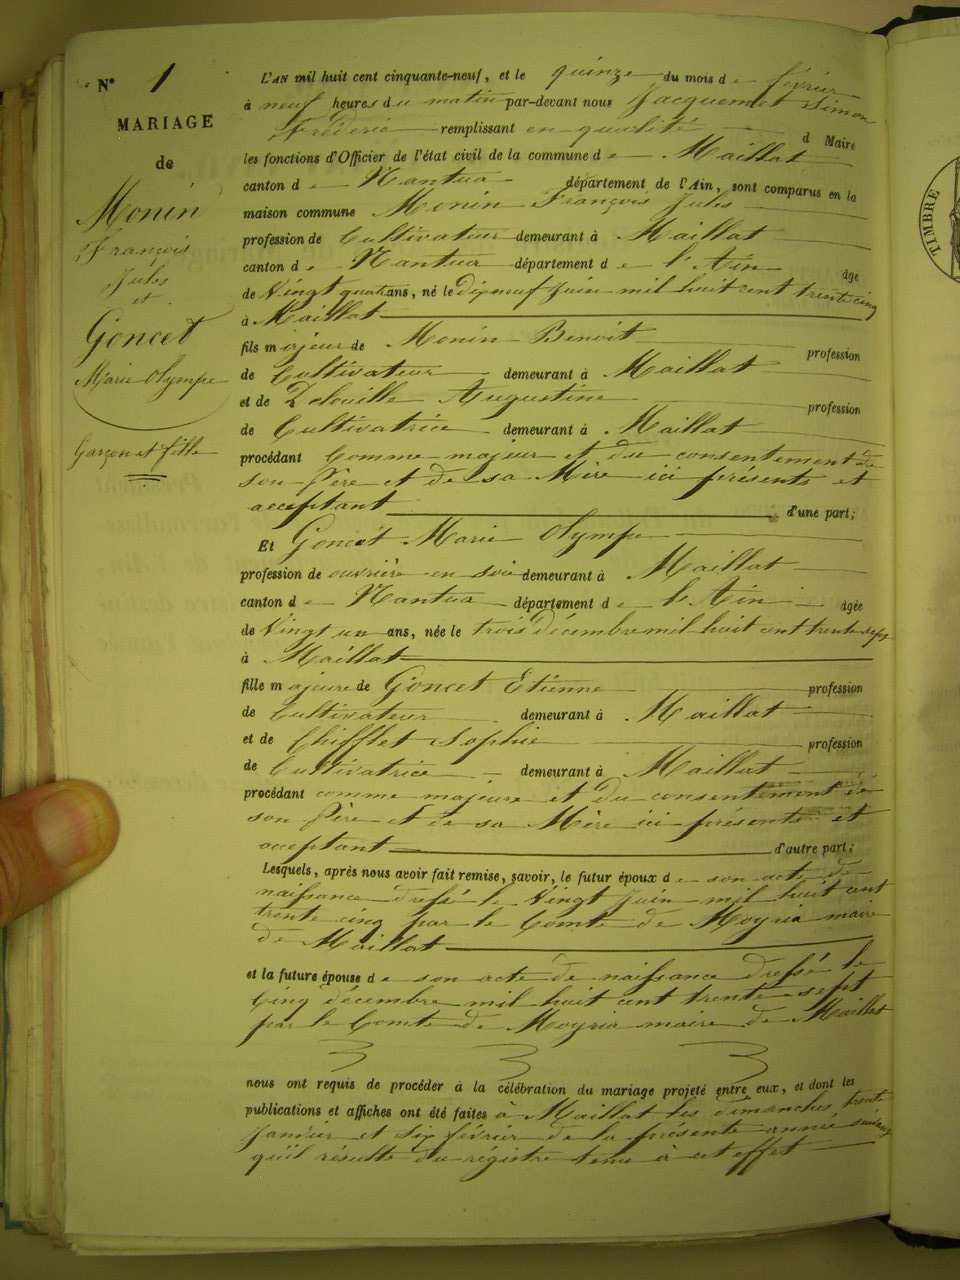 N° 1
MARIAGE
de
Monin
François
Jules
et
Goncet
Marie Olympe
Garçon et fille
L'AN mil huit cent cinquante-neuf, et le quinze du mois de février
à neuf heures du matin par-devant nous Jacquemet Simon
Frédéric remplissant en qualité d Maire
les fonctions d'Officier de l'état civil de la commune de Maillat
canton de Nantua département de l'Ain, sont comparus en la
maison commune Monin François Jules
profession de Cultivateur demeurant à Maillat
canton de Nantua département de l'Ain âgé
de Vingt quatre ans, né le dix neuf Juin mil huit cent trente cinq
à Maillat
fils majeur de Monin Benoit profession
de Cultivateur demeurant à Maillat
et de Augustine profession
de Cultivatrice demeurant à Maillat
procédant Comme majeur et du consentement de
son Père et de sa Mère ici présents et
acceptant d'une part;
Et Goncet Marie Olympe
profession de ouvrière en soie demeurant à Maillat
canton de Nantua département de l'Ain âgée
de Vingt un ans, née le trois décembre mil huit cent trente sept
à Maillat
fille majeure de Goncet Etienne profession
de Cultivateur demeurant à Maillat
et de Chifflet Sophie profession
de Cultivatrice demeurant à Maillat
procédant comme majeure et du consentement de
son Père et de sa Mère ici présents et
acceptant d'autre part;
Lesquels, après nous avoir fait remise, savoir, le futur époux de son acte de
naissance dressé le Vingt Juin mil huit cent
trente cinq par le Comte de Moyria maire
de Maillat
et la future épouse de son acte de naissance dressé le
Cinq décembre mil huit cent trente sept
par le Comte de Moyria maire de Maillat
nous ont requis de procéder à la célébration du mariage projeté entre eux, et dont les
publications et affiches ont été faites à Maillat les dimanches trente
Janvier et six février de la présente année suivant
qu'il résulte du régistre tenu à cet effet
TIMBRE